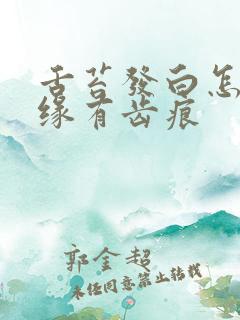 舌苔發白怎
緣有齿痕
郭金超
未经同意禁止转载